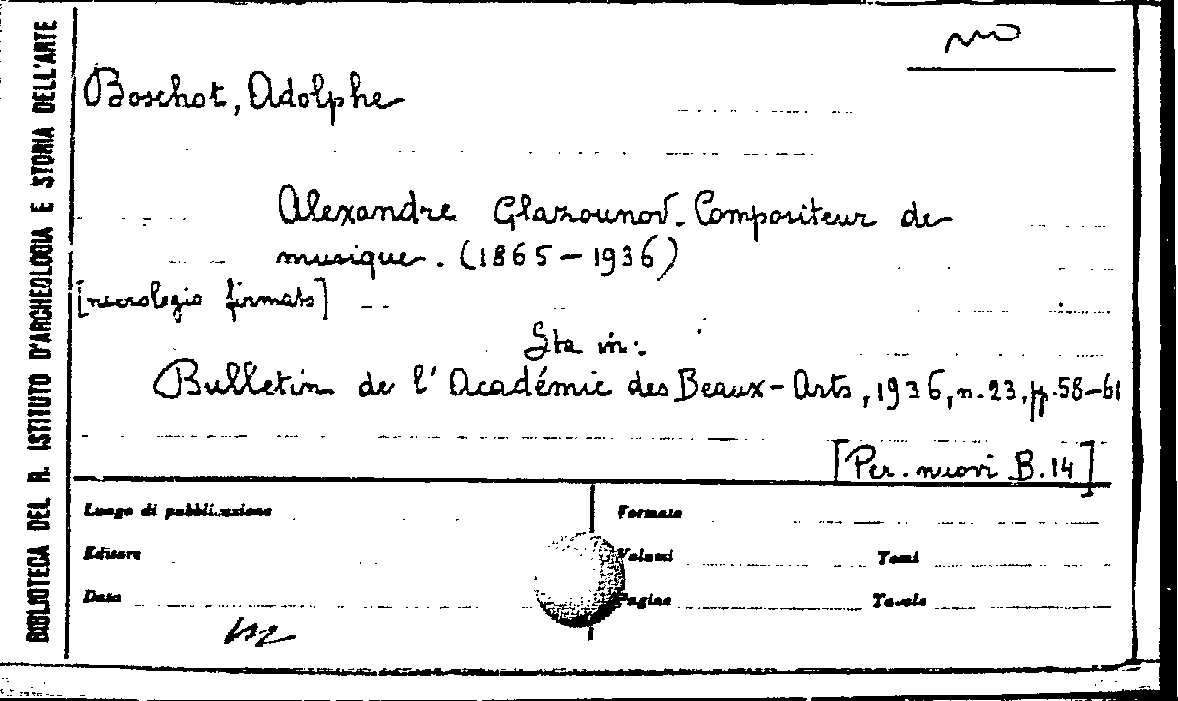 BIBLIOTECA DEL R. ISTITUTO D'ARCHEOLOGIA E STORIA DELL'ARTE
Boschot, Adolphe
Alexandre Glazounov. Compositeur de
musique. (1865-1936)
[necrologio firmato]
Sta in:
Bulletin de l'Académie des Beaux-Arts, 1936, n. 23, pp. 58-61
[Per. nuovi B. 14]
Luogo di pubblicazione
Formato
Editore
Volumi Tomi
Data
Pagine Tavole